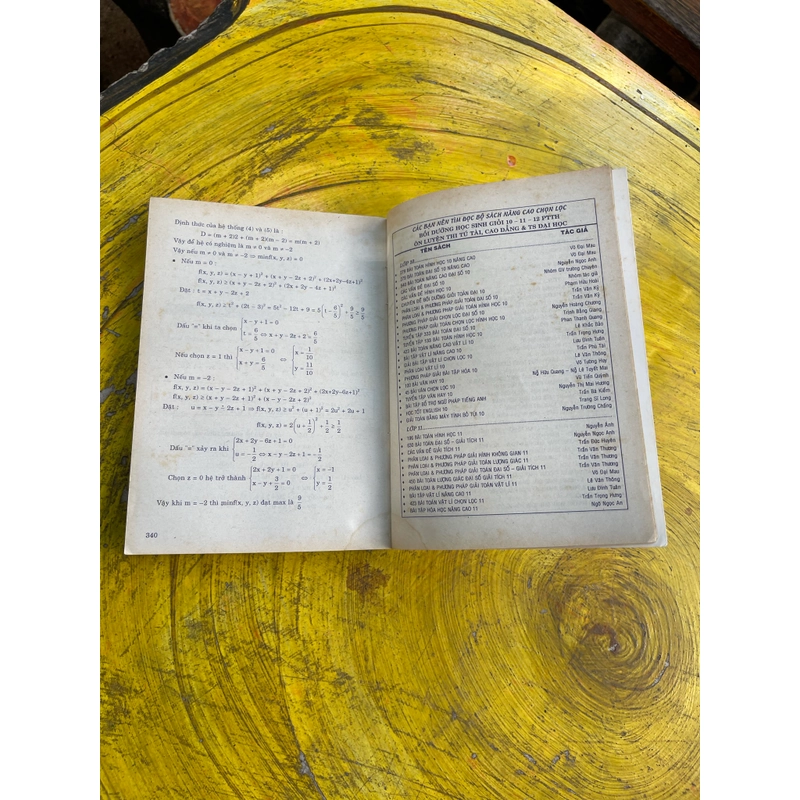 Định thức của hệ thống (4) và (5) là :
D = (m + 2)2 + (m + 2)(m – 2) = m(m + 2)
Vậy để hệ có nghiệm là m ≠ 0 và m ≠ –2
Vậy nếu m ≠ 0 và m ≠ –2 ⇒ minf(x, y, z) = 0
• Nếu m = 0 :
f(x, y, z) = (x – y + 1)² + (x + y – 2z + 2)² + (2x+2y–4z+1)²
f(x, y, z) ≥ (x + y – 2z + 2)² + (2x + 2y – 4z + 1)²
Đặt : t = x + y – 2z + 2
f(x, y, z) ≥ t² + (2t – 3)² = 5t² – 12t + 9 = 5(t – 6/5)² + 9/5 ≥ 9/5
Dấu "=" khi ta chọn { x – y + 1 = 0 ; t = 6/5 ⇔ x + y – 2z + 2 = 6/5
Nếu chọn z = 1 thì { x – y + 1 = 0 ; x + y = 6/5 ⇔ { x = 1/10 ; y = 11/10
• Nếu m = –2 :
f(x, y, z) = (x – y – 2z + 1)² + (x + y – 2z + 2)² + (2x+2y–6z+1)²
f(x, y, z) ≥ (x – y – 2z + 1)² + (x – y – 2z + 2)²
Đặt : u = x – y – 2z + 1 ⇒ f(x, y, z) ≥ u² + (u + 1)² = 2u² + 2u + 1
f(x, y, z) = 2(u + 1/2)² + 1/2 ≥ 1/2
Dấu "=" xảy ra khi { 2x + 2y – 6z + 1 = 0 ; u = –1/2 ⇔ x – y – 2z + 1 = –1/2
Chọn z = 0 hệ trở thành { 2x + 2y + 1 = 0 ; x – y + 3/2 = 0 ⇔ { x = –1 ; y = 1/2
Vậy khi m = –2 thì minf(x, y, z) đạt max là 9/5
340
CÁC BẠN NÊN TÌM ĐỌC BỘ SÁCH NÂNG CAO CHỌN LỌC
BỒI DƯỠNG HỌC SINH GIỎI 10 – 11 – 12 PTTH
ÔN LUYỆN THI TÚ TÀI, CAO ĐẲNG & TS ĐẠI HỌC
TÊN SÁCH TÁC GIẢ
LỚP 10
BÀI TOÁN HÌNH HỌC 10 NÂNG CAO Võ Đại Mau
BÀI TOÁN ĐẠI SỐ 10 NÂNG CAO Võ Đại Mau
BÀI TOÁN ĐẠI SỐ 10 Nguyễn Ngọc Anh
CÁC VẤN ĐỀ ĐẠI SỐ 10 Nhóm GV trường Chuyên
CÁC VẤN ĐỀ HÌNH HỌC 10 Nhóm tác giả
CHUYÊN ĐỀ BỒI DƯỠNG GIỎI TOÁN ĐẠI SỐ 10 Phạm Hữu Hoài
PHÂN LOẠI & PHƯƠNG PHÁP GIẢI TOÁN ĐẠI SỐ 10 Trần Văn Kỷ
PHÂN LOẠI & PHƯƠNG PHÁP GIẢI TOÁN HÌNH HỌC 10 Trần Văn Kỷ
PHƯƠNG PHÁP GIẢI TOÁN CHỌN LỌC ĐẠI SỐ 10 Nguyễn Hoàng Chương
PHƯƠNG PHÁP GIẢI TOÁN CHỌN LỌC HÌNH HỌC 10 Trịnh Bằng Giang
TUYỂN TẬP 333 BÀI TOÁN ĐẠI SỐ 10 Phan Thanh Quang
TUYỂN TẬP BÀI TOÁN HÌNH HỌC 10 Lê Khắc Bảo
423 BÀI TOÁN NÂNG CAO VẬT LÍ 10 Trần Trọng Hưng
BÀI TẬP VẬT LÍ NÂNG CAO 10 Lưu Đình Tuân
GIẢI BÀI TẬP VẬT LÍ CHỌN LỌC 10 Trần Phú Tài
PHÂN LOẠI VẬT LÍ 10 Lê Văn Thông
PHƯƠNG PHÁP GIẢI BÀI TẬP HÓA 10 Võ Tường Huy
BÀI VĂN HAY 10 Ng Hữu Quang – Ng Lê Tuyết Mai
45 BÀI VĂN CHỌN LỌC 10 Vũ Tiến Quỳnh
TUYỂN TẬP VĂN HAY 10 Nguyễn Thị Mai Hương
BÀI TẬP BỔ TRỢ NGỮ PHÁP TIẾNG ANH Trần Bá Kiểm
HỌC TỐT ENGLISH 10 Trang Sĩ Long
GIẢI TOÁN BẰNG MÁY TÍNH BỎ TÚI 10 Nguyễn Trường Chấng
LỚP 11
• BÀI TOÁN HÌNH HỌC 11 Nguyễn Ánh
• BÀI TOÁN ĐẠI SỐ – GIẢI TÍCH 11 Nguyễn Ngọc Anh
• CÁC VẤN ĐỀ GIẢI TÍCH 11 Trần Đức Huyên
• PHÂN LOẠI & PHƯƠNG PHÁP GIẢI HÌNH KHÔNG GIAN 11 Trần Văn Thương
• PHÂN LOẠI & PHƯƠNG PHÁP GIẢI TOÁN LƯỢNG GIÁC 11 Trần Văn Thương
• PHÂN LOẠI & PHƯƠNG PHÁP GIẢI TOÁN ĐẠI SỐ – GIẢI TÍCH 11 Trần Văn Thương
• BÀI TOÁN LƯỢNG GIÁC ĐẠI SỐ GIẢI TÍCH 11 Võ Đại Mau
• PHÂN LOẠI & PHƯƠNG PHÁP GIẢI TOÁN VẬT LÍ 11 Lê Văn Thông
• BÀI TẬP VẬT LÍ NÂNG CAO 11 Lưu Đình Tuân
• 423 BÀI TOÁN VẬT LÍ CHỌN LỌC 11 Trần Trọng Hưng
• BÀI TẬP HÓA HỌC NÂNG CAO 11 Ngô Ngọc An